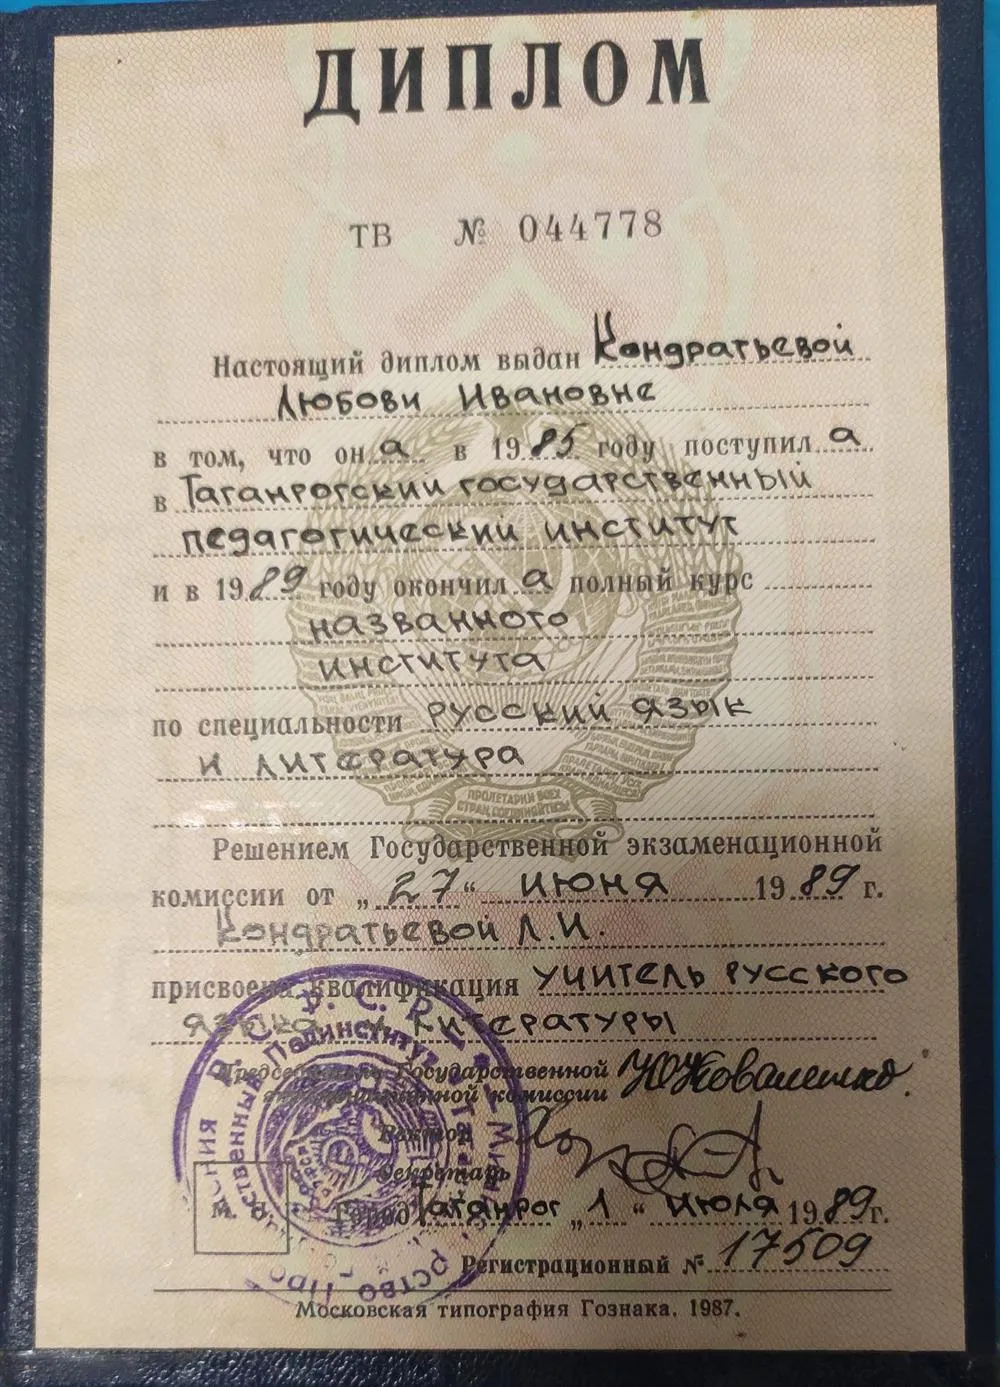 ДИПЛОМ
ТВ № 044778
Настоящий диплом выдан Кондратьевой
Любови Ивановне
в том, что он а в 1985 году поступил а
в Таганрогский государственный
педагогический институт
и в 1989 году окончил а полный курс
названного
института
по специальности русский язык
и литература
Решением Государственной экзаменационной
комиссии от „27“ июня 1989 г.
Кондратьевой Л.И.
присвоена квалификация учитель русского
языка и литературы
Председатель Государственной
экзаменационной комиссии
Ректор
Секретарь
Город Таганрог „1“ июля 1989г.
Регистрационный № 17509
М. П.
Московская типография Гознака. 1987.
ПРОЛЕТАРИИ ВСЕХ
СТРАН, СОЕДИНЯЙТЕСЬ!